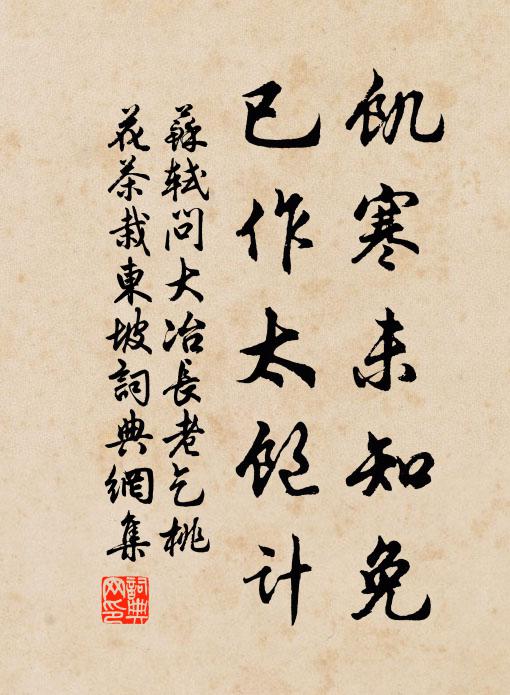 飢寒未知免
已作太飽計
蘇軾問大冶長老乞桃
花茶栽東坡詞典網集
詞典網印